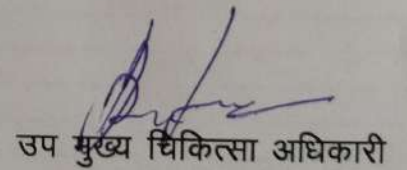 उप मुख्य चिकित्सा अधिकारी